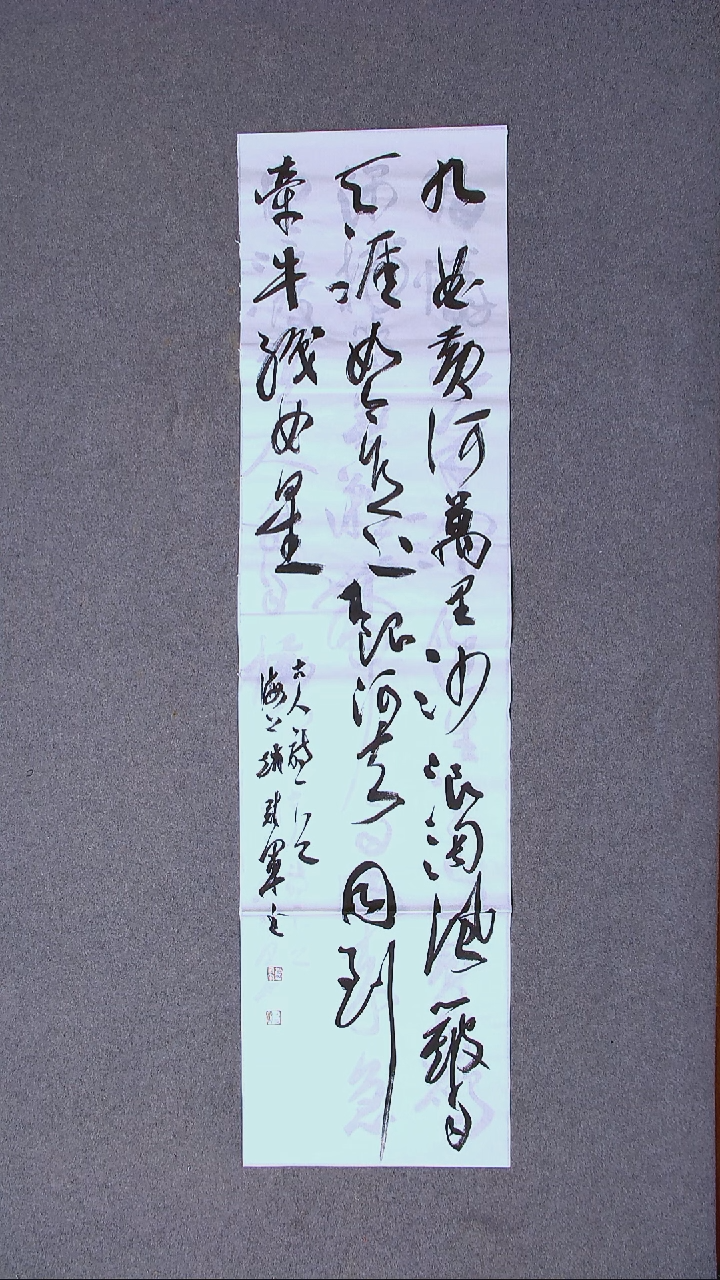 九曲黃河萬里沙浪淘風簸自
天涯如今直上銀河去同到
牽牛織女星
古人詩一
海上 軍書